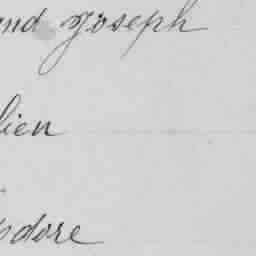 ond Joseph
lien
odore